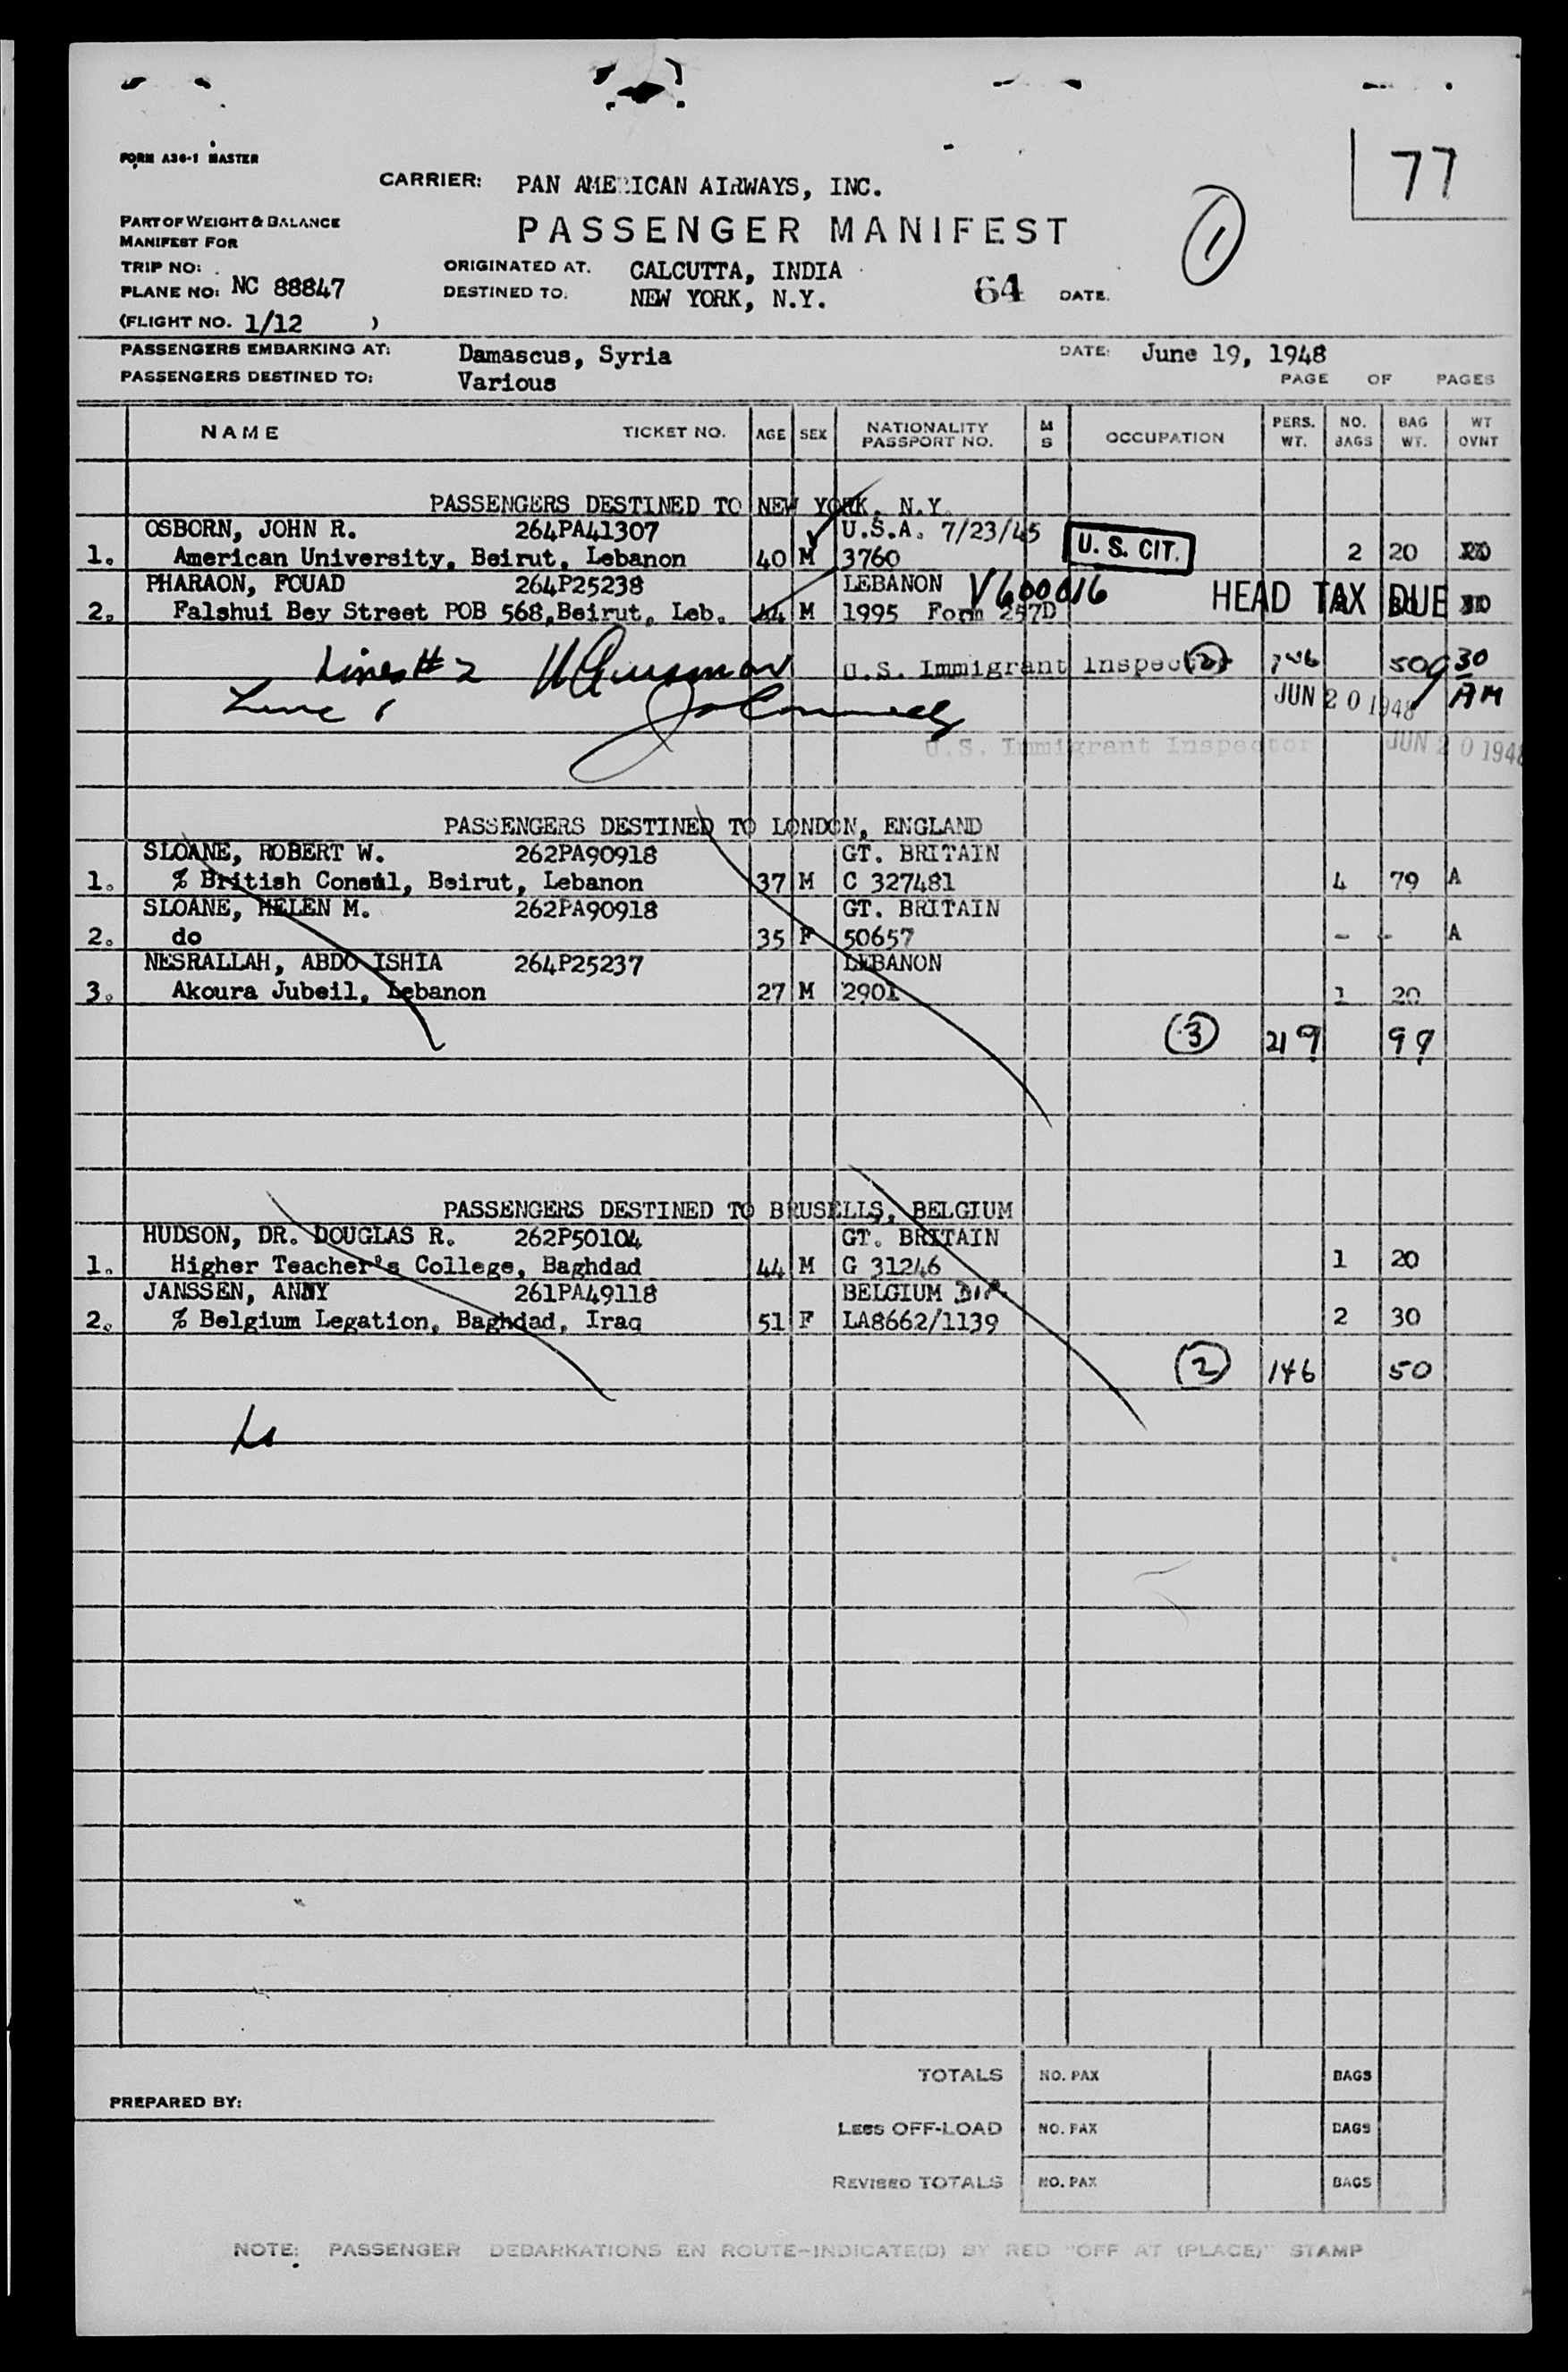 77
FORM A30-1 MASTER
CARRIER: PAN AMERICAN AIRWAYS, INC.
PART OF WEIGHT & BALANCE
MANIFEST FOR
PASSENGER MANIFEST
1
TRIP NO:
ORIGINATED AT. CALCUTTA, INDIA
PLANE NO: NC 88847
DESTINED TO. NEW YORK, N.Y.
64 DATE.
(FLIGHT NO. 1/12 )
PASSENGERS EMBARKING AT: Damascus, Syria DATE: June 19, 1948
PASSENGERS DESTINED TO: Various PAGE OF PAGES
NAME TICKET NO. AGE SEX NATIONALITY PASSPORT NO. M S OCCUPATION PERS. WT. NO. BAGS BAG WT. WT OVNT
PASSENGERS DESTINED TO NEW YORK, N.Y.
OSBORN, JOHN R. 264PA41307 U.S.A. 7/23/45
1. American University, Beirut, Lebanon 40 M 3760 U. S. CIT. 2 20
PHARAON, FOUAD 264P25238 LEBANON V600016
2. Falshui Bey Street POB 568, Beirut, Leb. 44 M 1995 Form 257D HEAD TAX DUE
Lines # 2 U.S. Immigrant Inspector 2 50 9 30 AM
Line 1 JUN 20 1948
U.S. Immigrant Inspector JUN 20 1948
PASSENGERS DESTINED TO LONDON, ENGLAND
SLOANE, ROBERT W. 262PA90918 GT. BRITAIN
1. % British Consul, Beirut, Lebanon 37 M C 327481 4 79 A
SLOANE, HELEN M. 262PA90918 GT. BRITAIN
2. do 35 F 50657 - - A
NESRALLAH, ABDO ISHIA 264P25237 LEBANON
3. Akoura Jubeil, Lebanon 27 M 2901 1 20
3 219 99
PASSENGERS DESTINED TO BRUSELLS, BELGIUM
HUDSON, DR. DOUGLAS R. 262P50104 GT. BRITAIN
1. Higher Teacher's College, Baghdad 44 M G 31246 1 20
JANSSEN, ANNY 261PA49118 BELGIUM Dip.
2. % Belgium Legation, Baghdad, Iraq 51 F LA8662/1139 2 30
2 146 50
TOTALS NO. PAX BAGS
PREPARED BY:
LESS OFF-LOAD NO. PAX BAGS
REVISED TOTALS NO. PAX BAGS
NOTE: PASSENGER DEBARKATIONS EN ROUTE-INDICATE(D) BY RED "OFF AT (PLACE)" STAMP